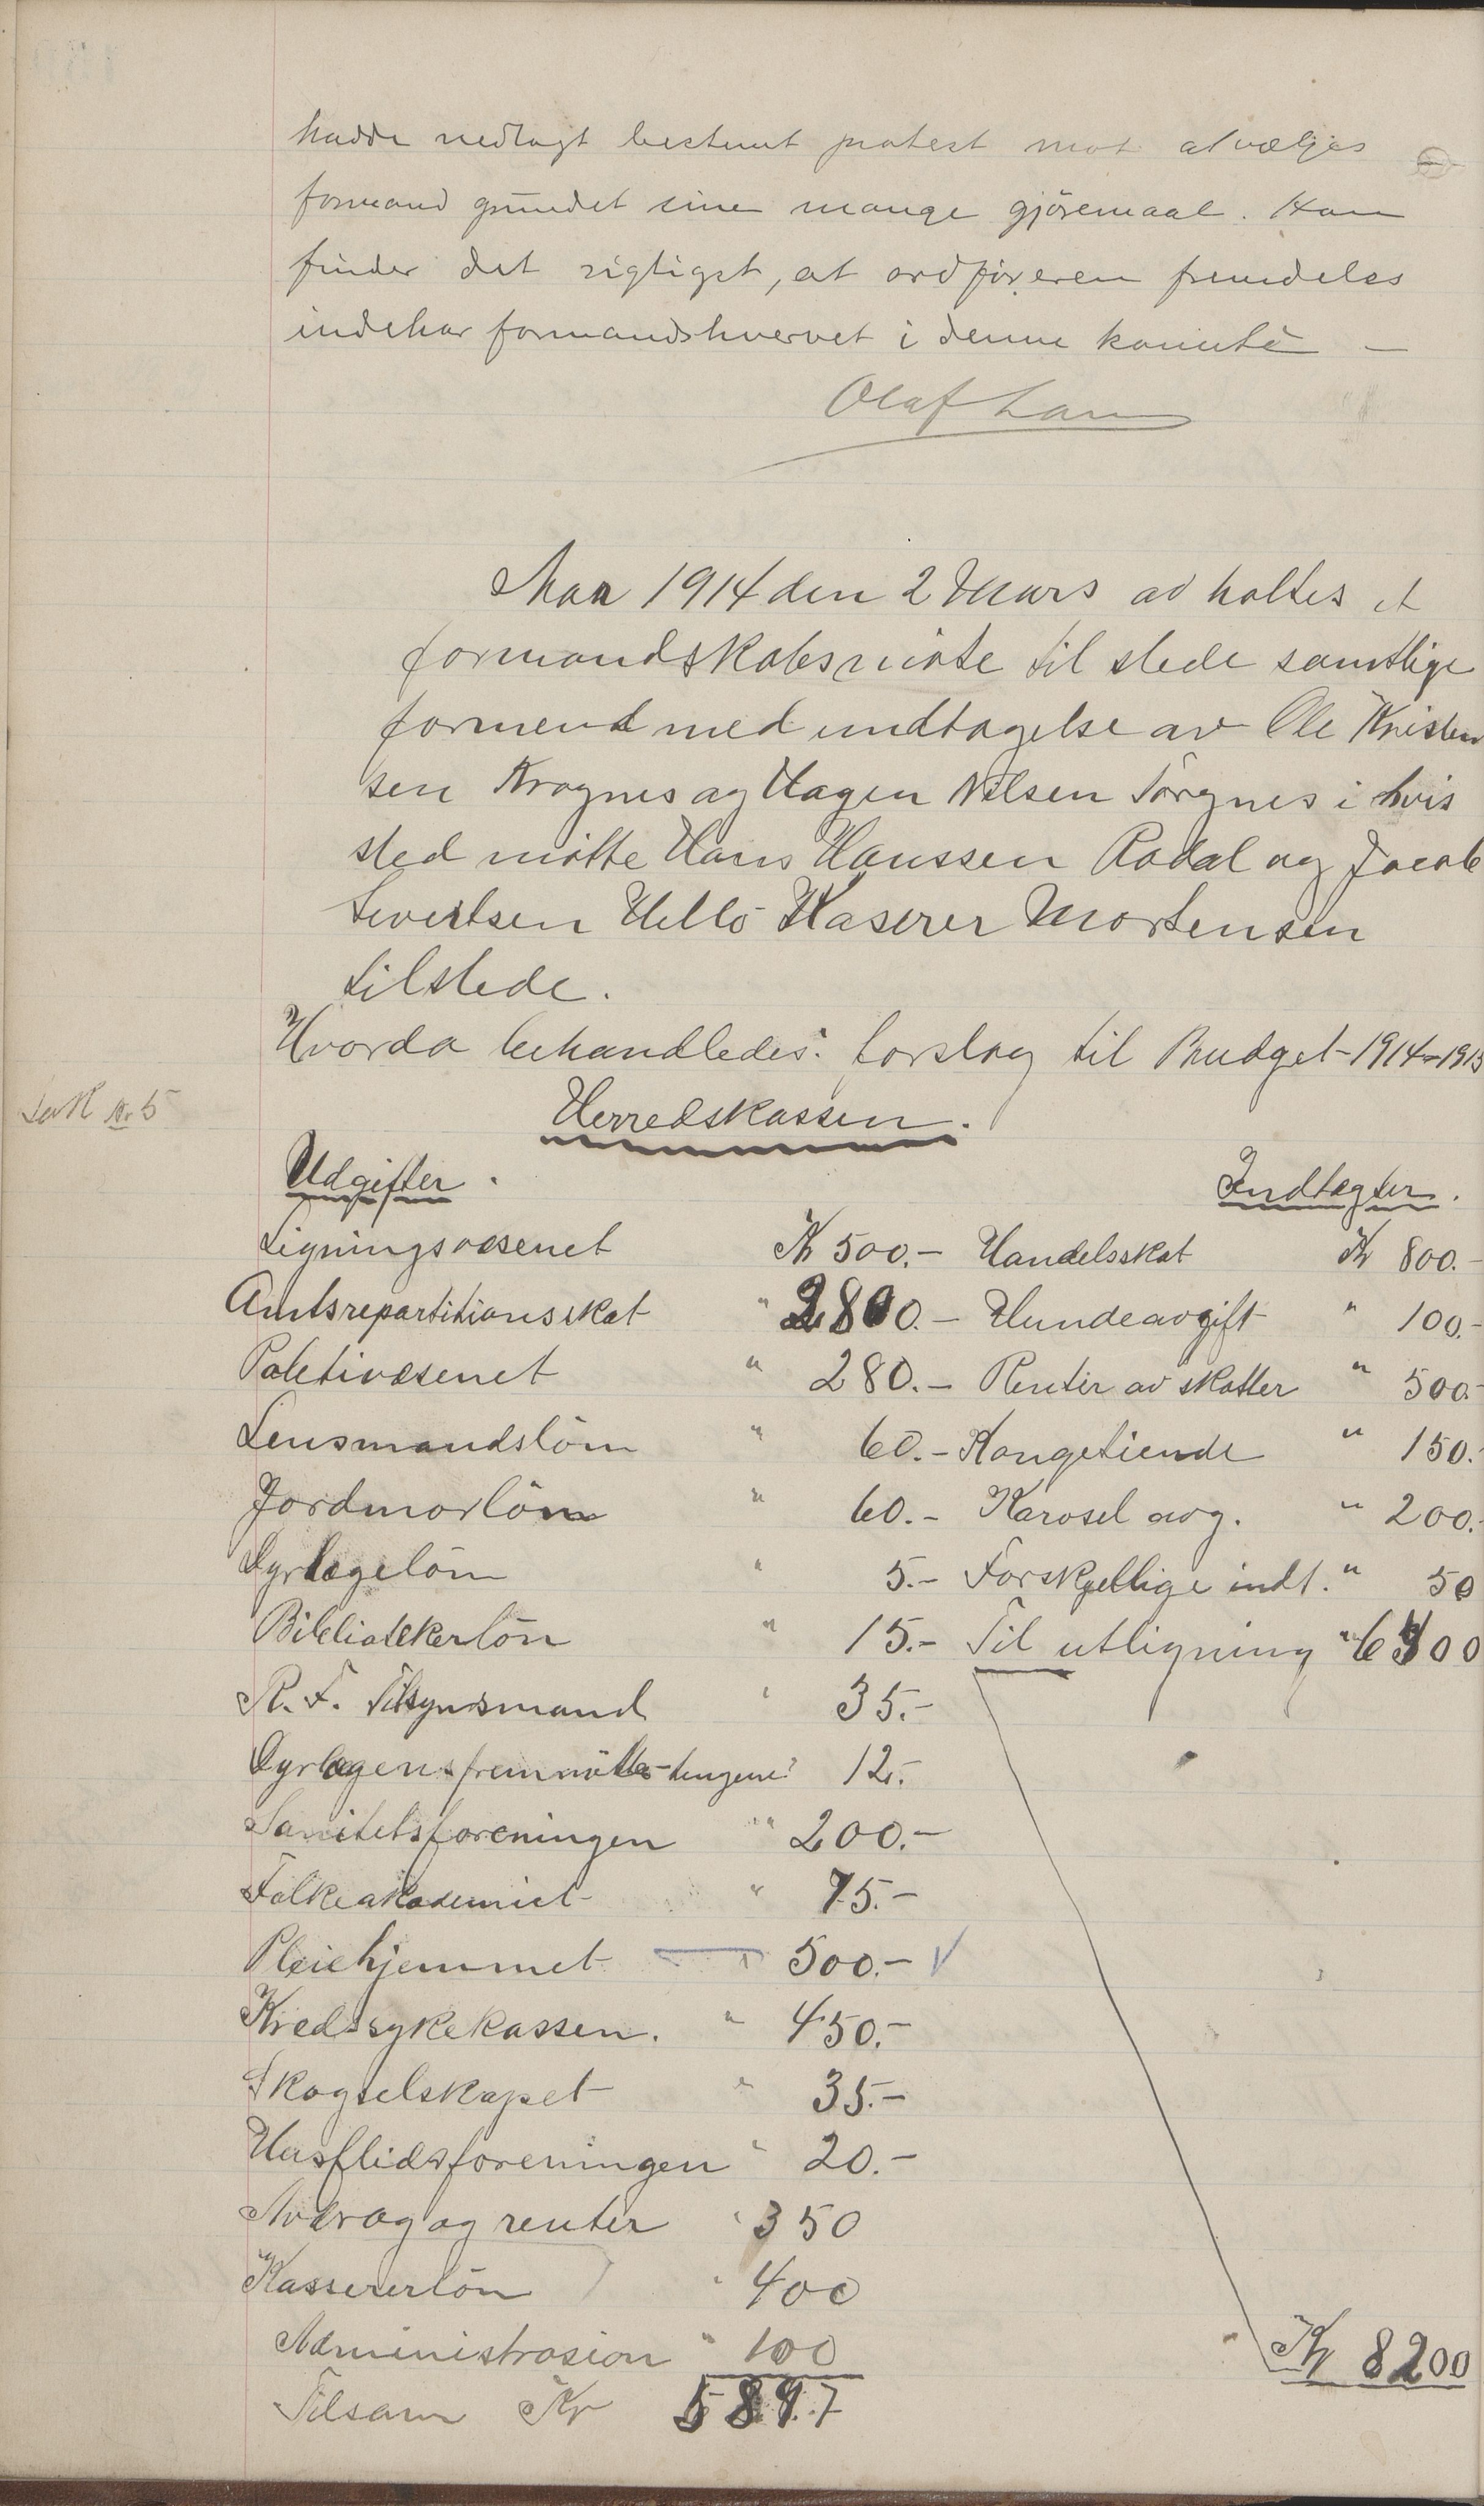 hadde nedlagt bestemt protest mot at vælges
formand grundet sine mange gjöremaal. Han
finder det rigtigst, at ordföreren fremdeles
indehar formandshvervet i denne komité –
Olaf
Aar 1914 den 2 Mars av holtes et
formandskabsmöte til stede samtlige
formend med undtagelse av Ole Kristen
sen Krognes og Hagen Nilsen Törgnes i hvis
sted mötte Hans Hanssen Rødal og Jacob
Sivertsen Kaserer Mortensen
tilstede.
Hvorda behandledes: forslag til Budget 1914-1915
Sak nr 5
Herredskassen.
Udgifter. Indtægter.
Ligningsvæsenet Kr 500.- Handelsskat Kr 800.-
Amtsrepartitionsskat " 2800.- Hundeavgift " 100.-
Poletivæsenet " 280.- Renter av skatter " 500.-
Lensmandslön " 60.- Kongetiende " 150.-
Jordmorlön " 60.- Karosel avg. " 200.-
Dyrlægelön " 5.- Forskjellige indt. " 50
Bibliotekerlön " 15.- Til utligning " 6400
R. F. Tilsynsmand " 35.-
Dyrlægens fremmöte tingene 12.-
Sanitetsforeningen " 200.-
Folkeakademiet " 75.-
Pleiehjemmet " 500.- V
Kredssykekassen. " 450.-
Skogselskapet " 35.-
Husflidsforeningen " 20.-
Avdrag og renter " 350
Kassererlön " 400
Administrasion " 100
Kr 8200
Tilsam Kr 5897